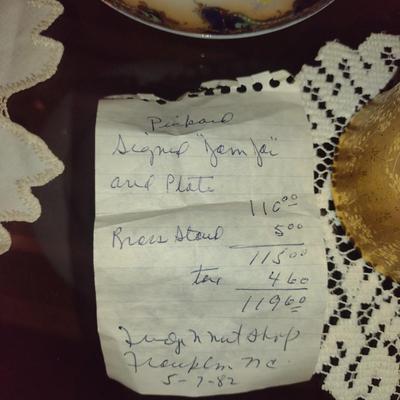 Pickard
Signed "Jam Jar"
and Plate
110.00
Brass Stand 5.00
115.00
tax 4.60
119.60
Fudge N Nut Shop
Franklin NC
5-7-82